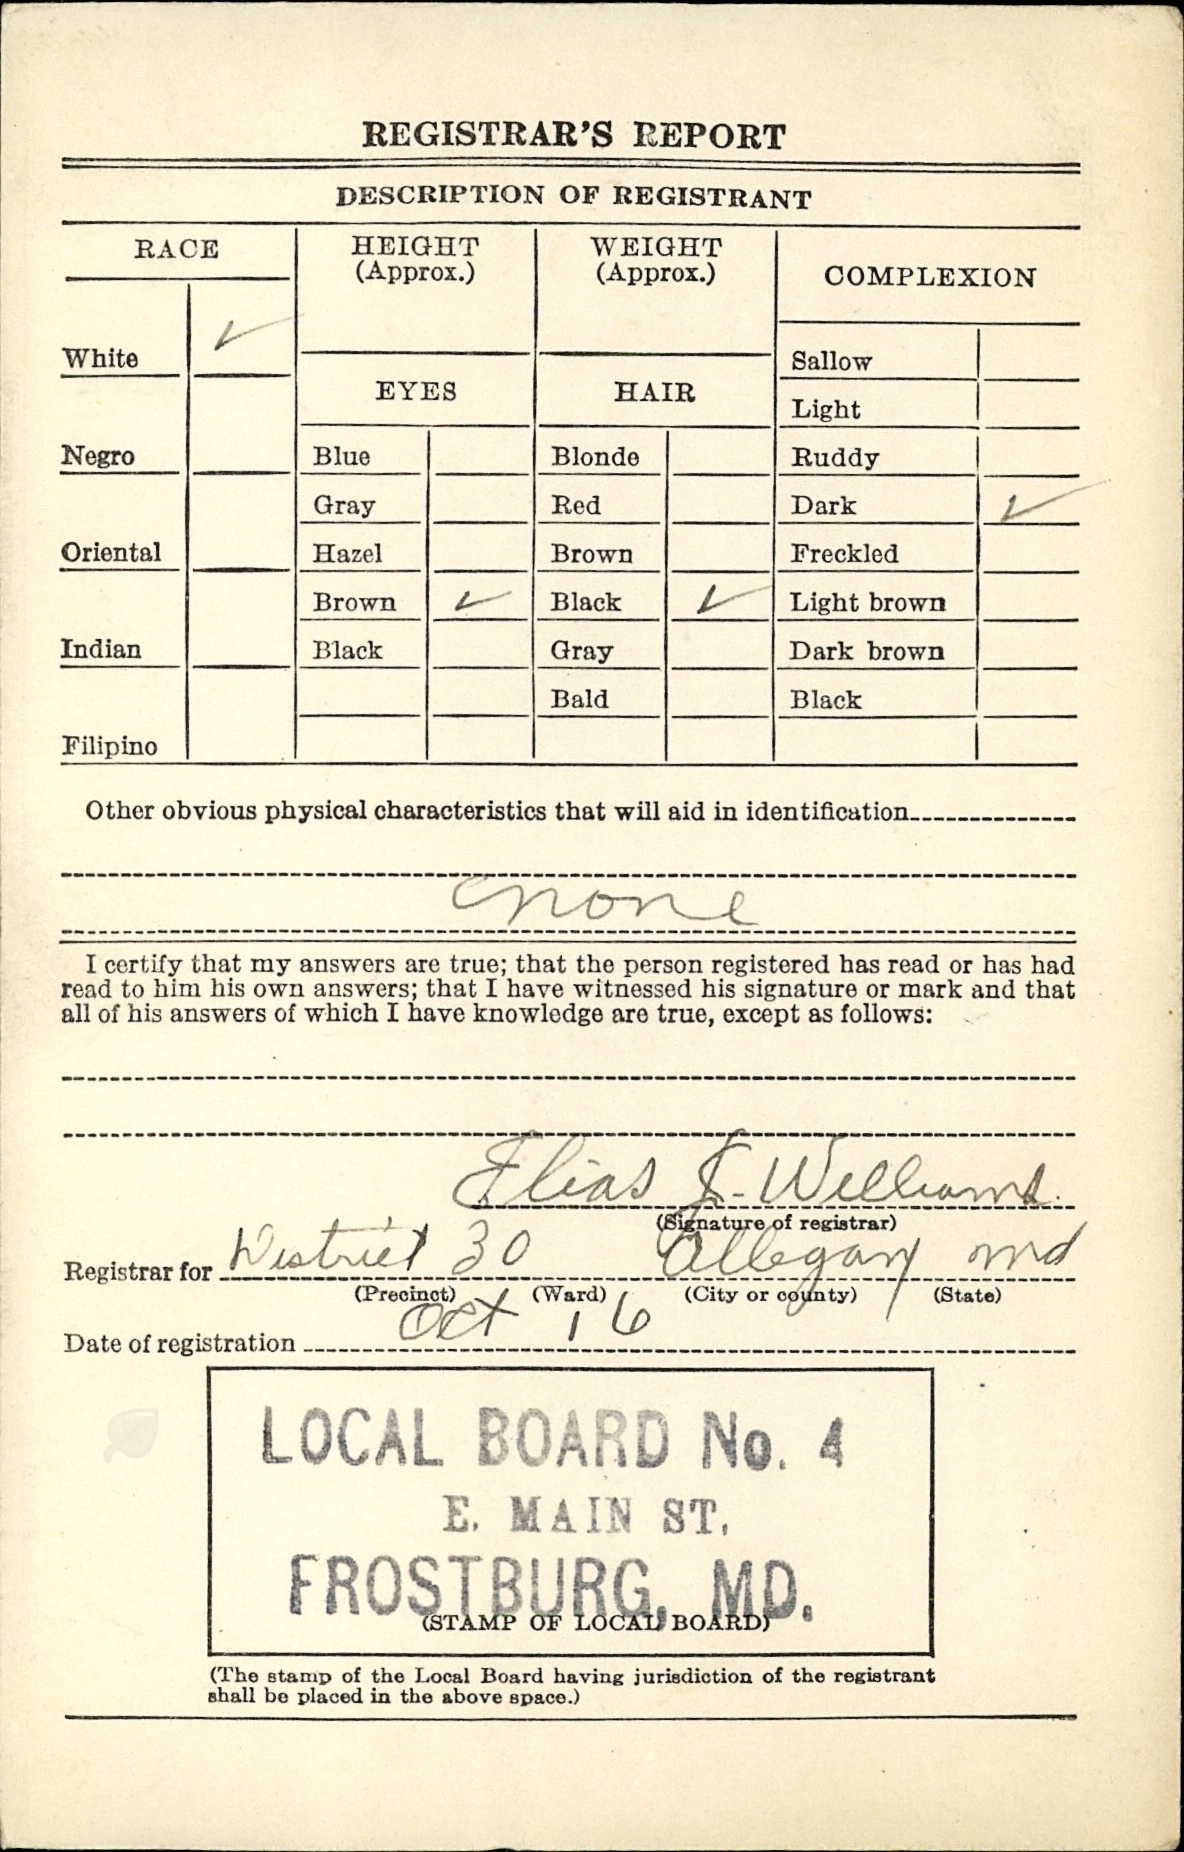 REGISTRAR'S REPORT
DESCRIPTION OF REGISTRANT
RACE
White ✓
Negro
Oriental
Indian
Filipino
HEIGHT
(Approx.)
WEIGHT
(Approx.)
EYES
Blue
Gray
Hazel
Brown ✓
Black
HAIR
Blonde
Red
Brown
Black ✓
Gray
Bald
COMPLEXION
Sallow
Light
Ruddy
Dark ✓
Freckled
Light brown
Dark brown
Black
Other obvious physical characteristics that will aid in identification
none
I certify that my answers are true; that the person registered has read or has had
read to him his own answers; that I have witnessed his signature or mark and that
all of his answers of which I have knowledge are true, except as follows:
Elias J. Williams
(Signature of registrar)
Registrar for District 30 Allegany Md
(Precinct) (Ward) (City or county) (State)
Date of registration Oct 16
LOCAL BOARD No. 4
E. MAIN ST.
FROSTBURG, MD.
(STAMP OF LOCAL BOARD)
(The stamp of the Local Board having jurisdiction of the registrant
shall be placed in the above space.)